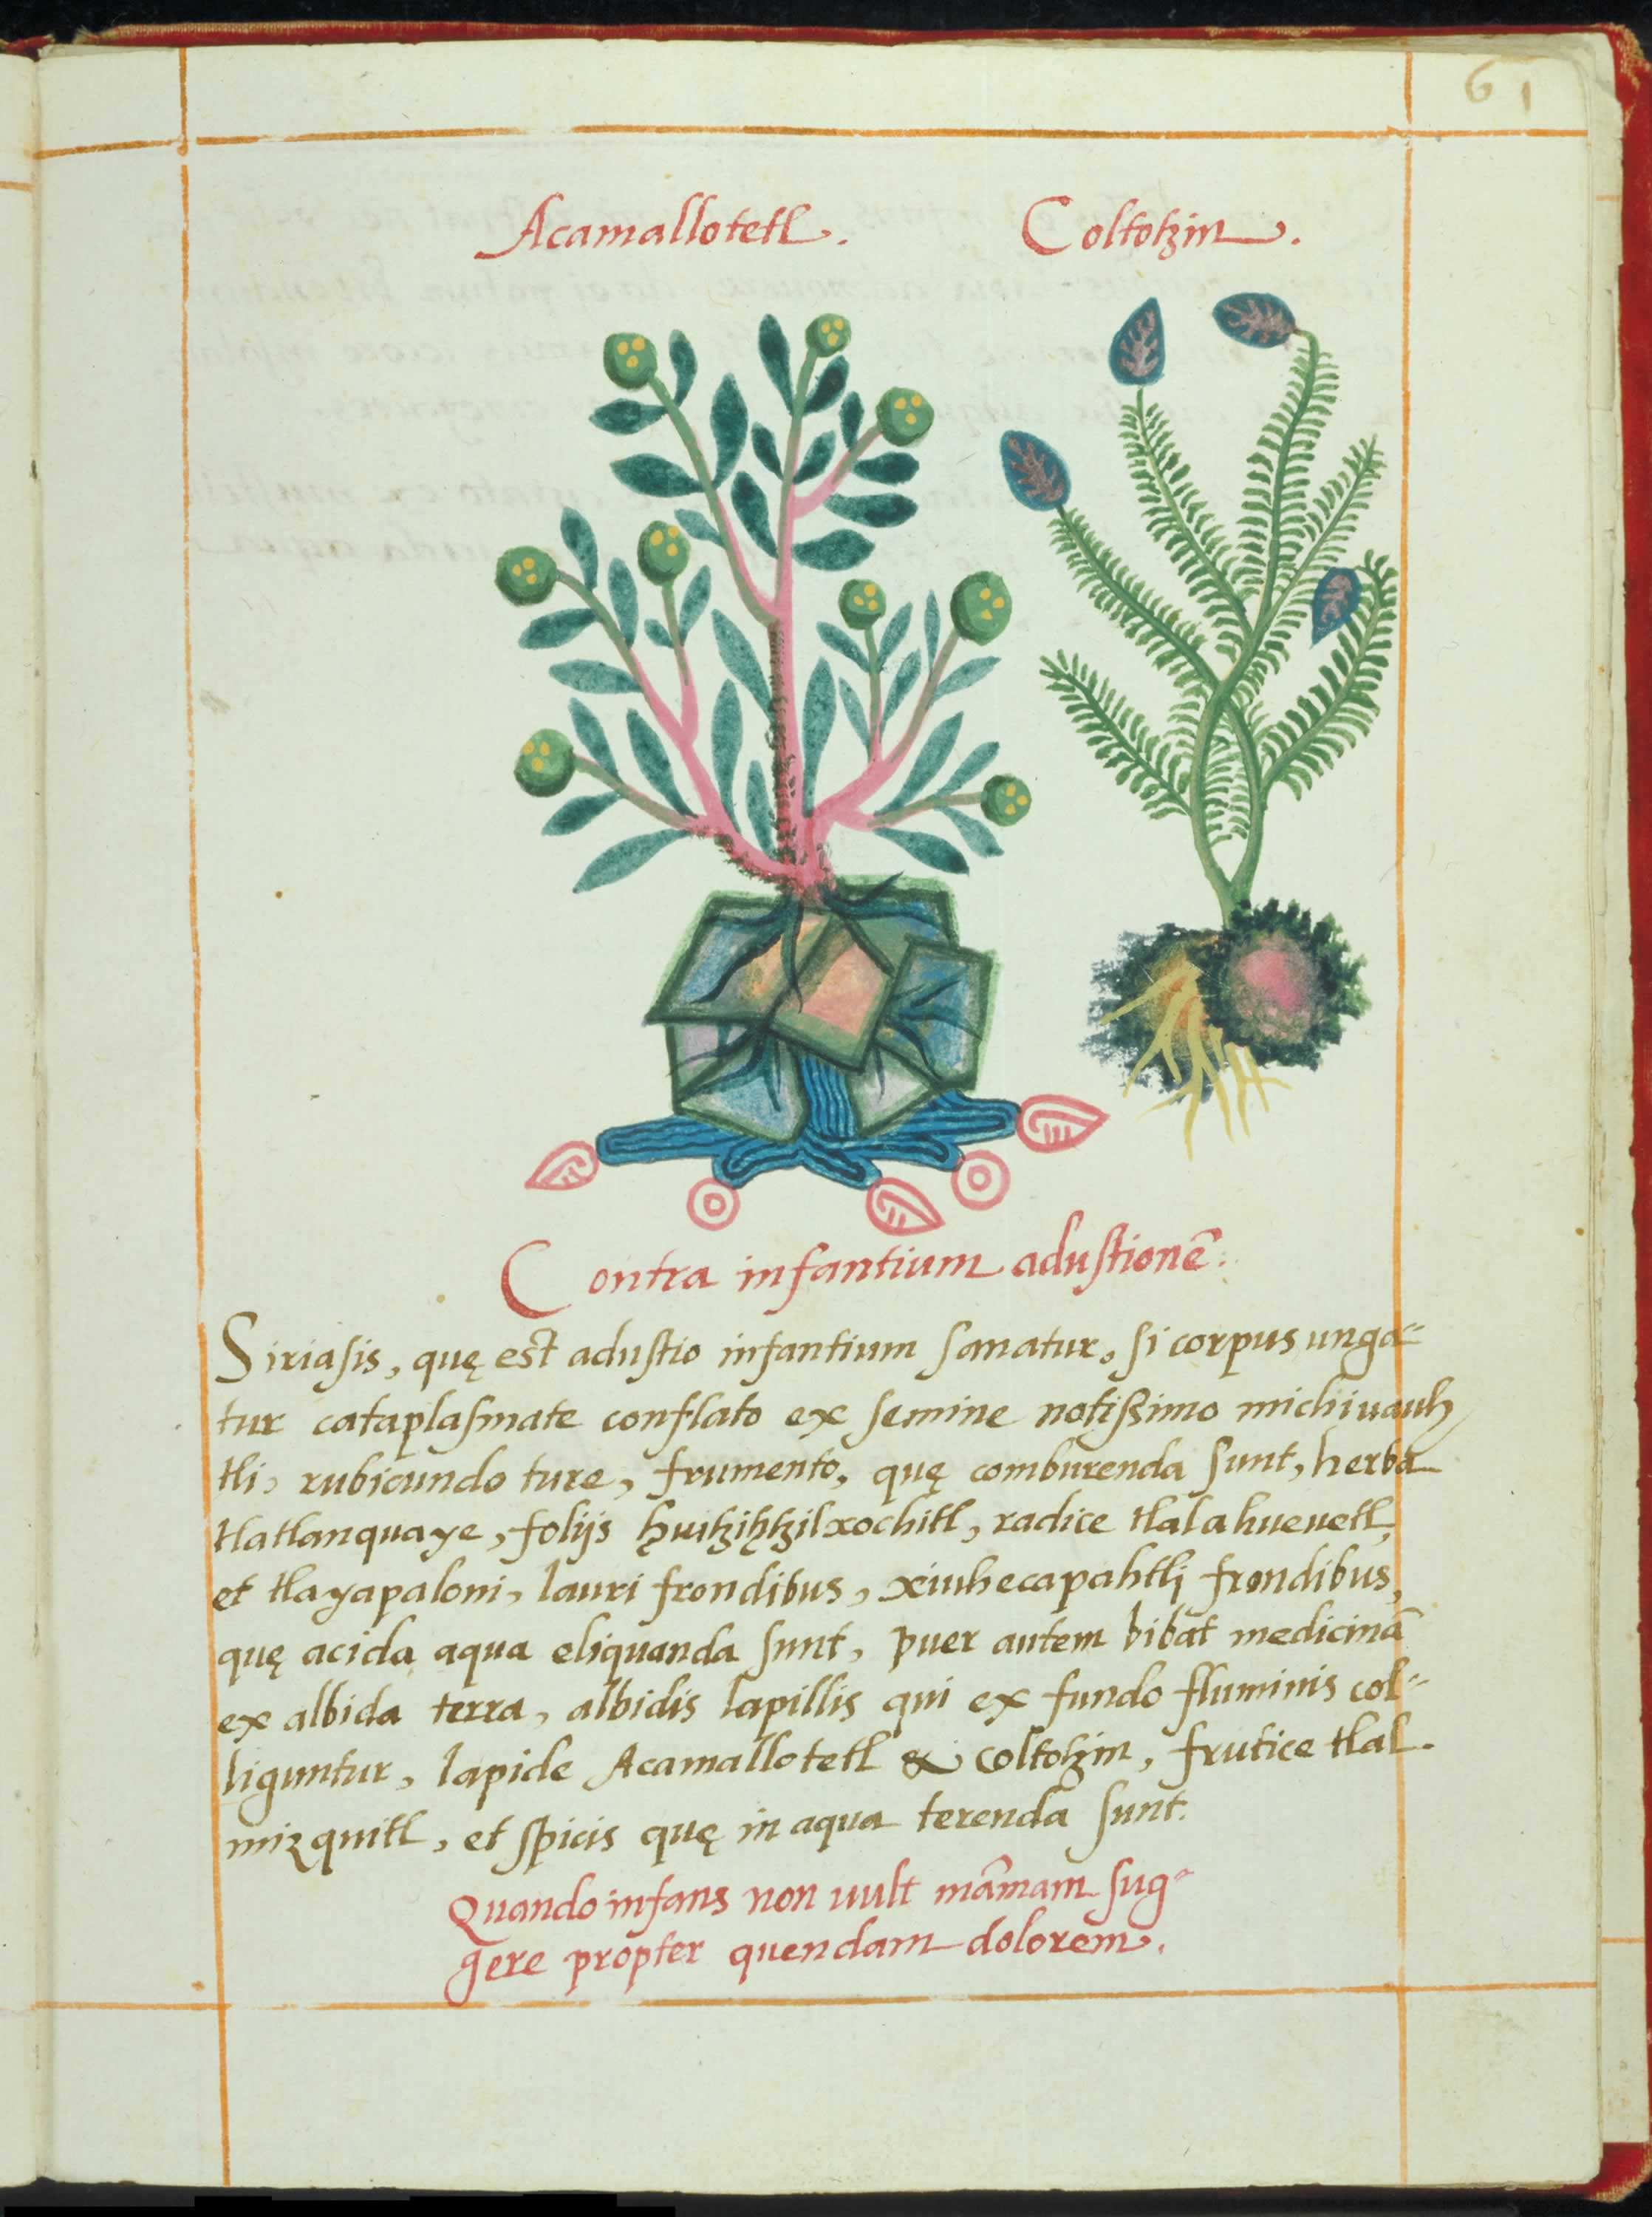 61
Acamallotetl. Coltotzin.
Contra infantium adustionē.
Siriasis, quę est adustio infantium sanatur, si corpus unga⸗
tur cataplasmate conflato ex semine notissimo michiuauh
tli, rubicundo ture, frumento, quę comburenda sunt, herba
tlatlanquaye, folijs huitzihtzilxochitl, radice tlalahueuetl,
et tlayapaloni, lauri frondibus, xiuhecapahtli frondibus,
quę acida aqua eliquanda sunt, puer autem bibat medicinā
ex albida terra, albidis lapillis qui ex fundo fluminis col⸗
liguntur, lapide Acamallotetl & coltotzin, frutice tlal.
mizquitl, et spicis quę in aqua terenda sunt.
Quando infans non uult mām̄am sug⸗
gere propter quendam dolorem.